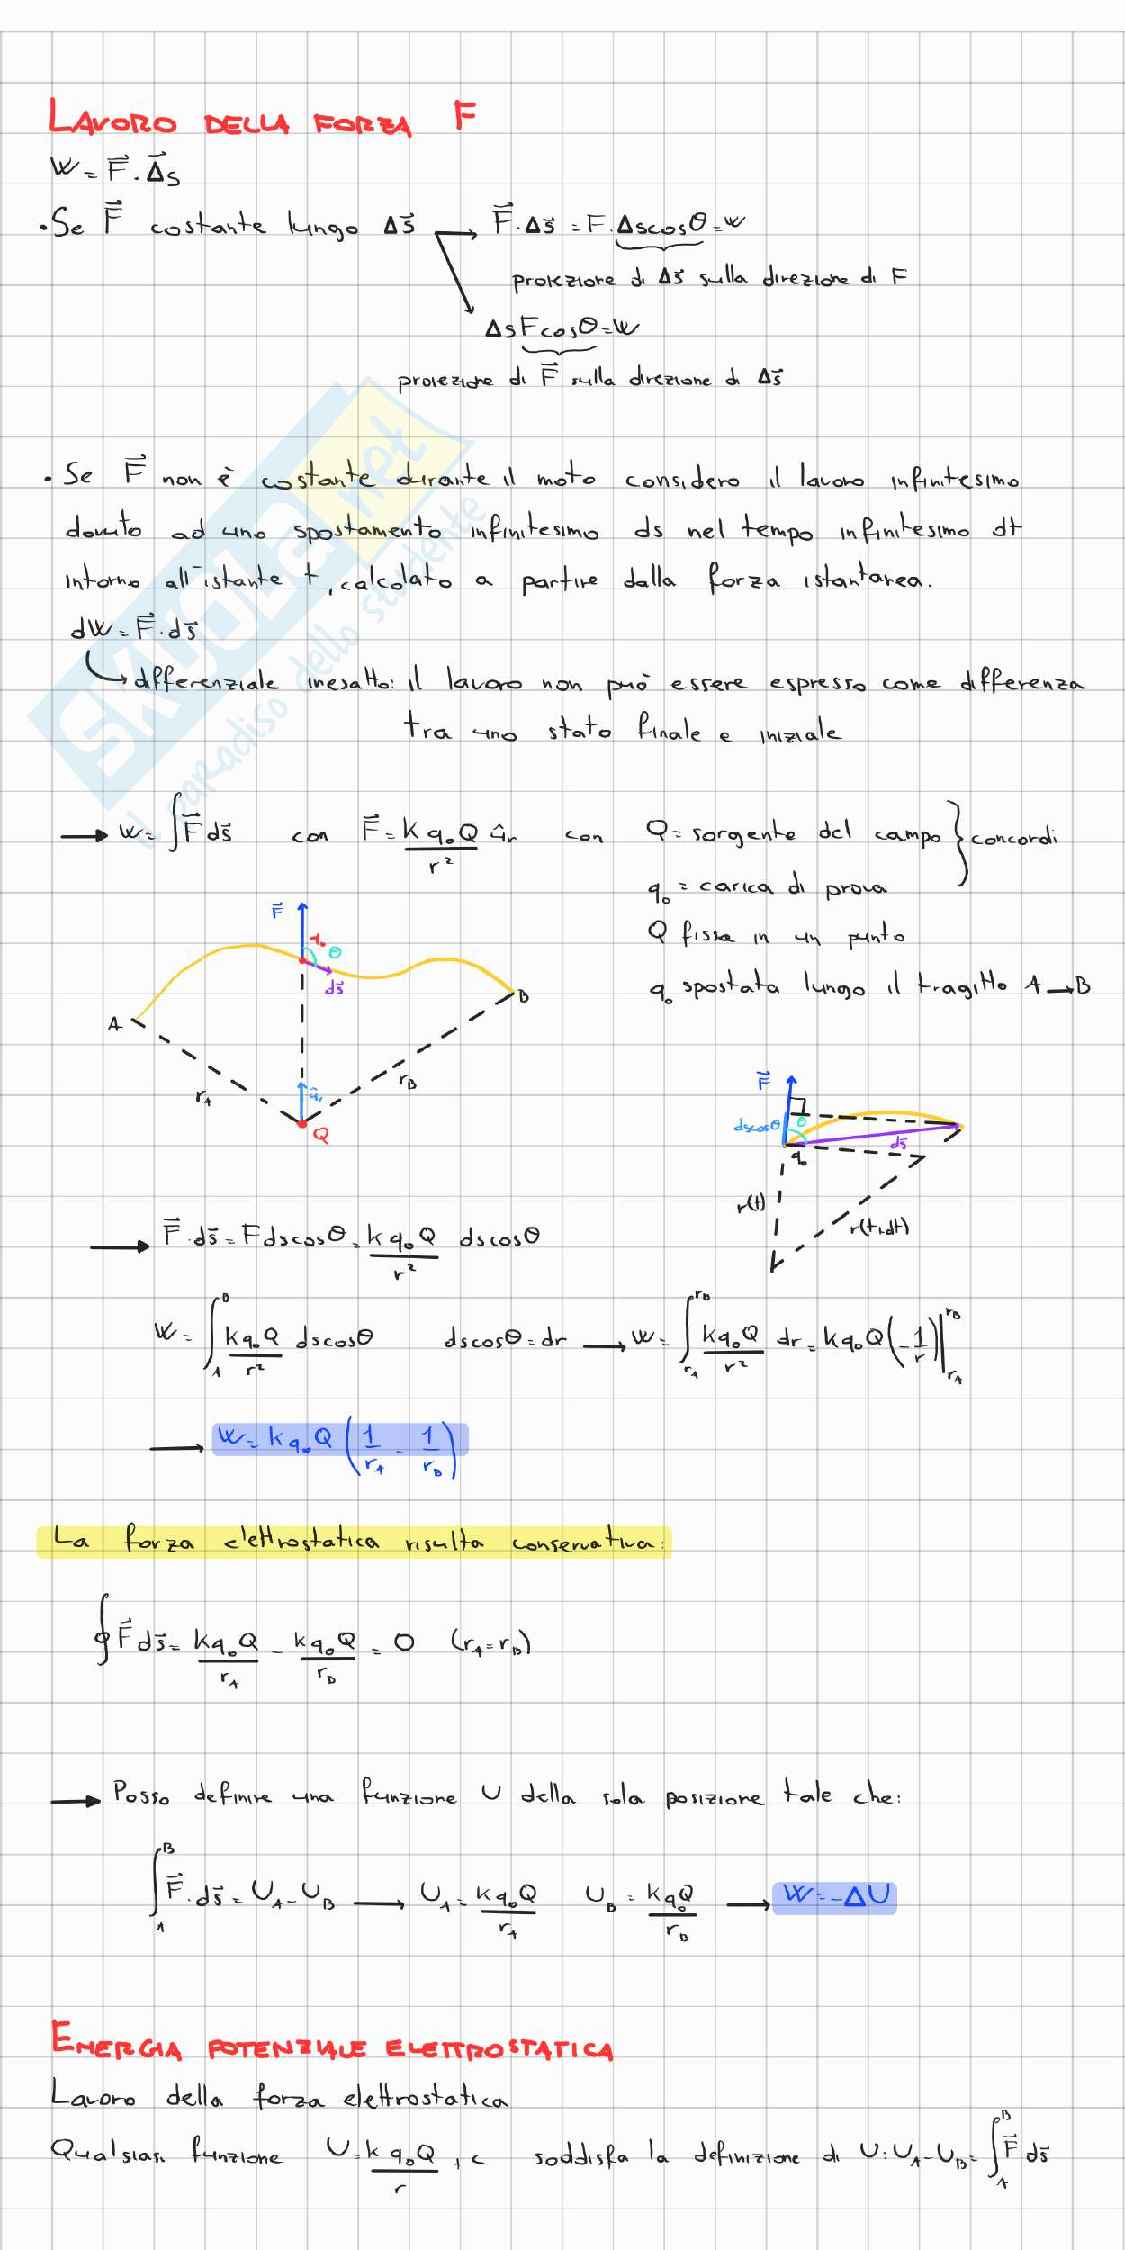 LAVORO DELLA FORZA F
W = F⃗ · Δ⃗s
· Se F⃗ costante lungo Δs⃗ → F⃗ · Δs⃗ = F · Δscosθ = W
proiezione di Δs⃗ sulla direzione di F
ΔsFcosθ = W
proiezione di F⃗ sulla direzione di Δs⃗
· Se F⃗ non è costante durante il moto considero il lavoro infinitesimo
dovuto ad uno spostamento infinitesimo ds nel tempo infinitesimo dt
intorno all'istante t, calcolato a partire dalla forza istantanea.
dW = F⃗ · ds⃗
↳ differenziale inesatto: il lavoro non può essere espresso come differenza
tra uno stato finale e iniziale
→ W = ∫ F⃗ ds⃗ con F⃗ = k q₀ Q / r² û_r con Q = sorgente del campo } concordi
q₀ = carica di prova
Q fissa in un punto
q₀ spostata lungo il tragitto A → B
F⃗ q₀ θ ds⃗
A B
r_A r_B û_r
Q
F⃗
dscosθ θ ds⃗
q₀
r(t) r(t+dt)
→ F⃗ · ds⃗ = F dscosθ = k q₀ Q / r² dscosθ
W = ∫_A^B k q₀ Q / r² dscosθ dscosθ = dr → W = ∫_{r_A}^{r_B} k q₀ Q / r² dr = k q₀ Q (-1/r) |_{r_A}^{r_B}
→ W = k q₀ Q (1/r_A - 1/r_B)
La forza elettrostatica risulta conservativa:
∮ F⃗ ds⃗ = k q₀ Q / r_A - k q₀ Q / r_B = 0 (r_A = r_B)
→ Posso definire una funzione U della sola posizione tale che:
∫_A^B F⃗ · ds⃗ = U_A - U_B → U_A = k q₀ Q / r_A U_B = k q₀ Q / r_B → W = -ΔU
ENERGIA POTENZIALE ELETTROSTATICA
Lavoro della forza elettrostatica
Qualsiasi funzione U = k q₀ Q / r + c soddisfa la definizione di U: U_A - U_B = ∫_A^B F⃗ ds⃗
SKUOLA.net
il paradiso dello studente